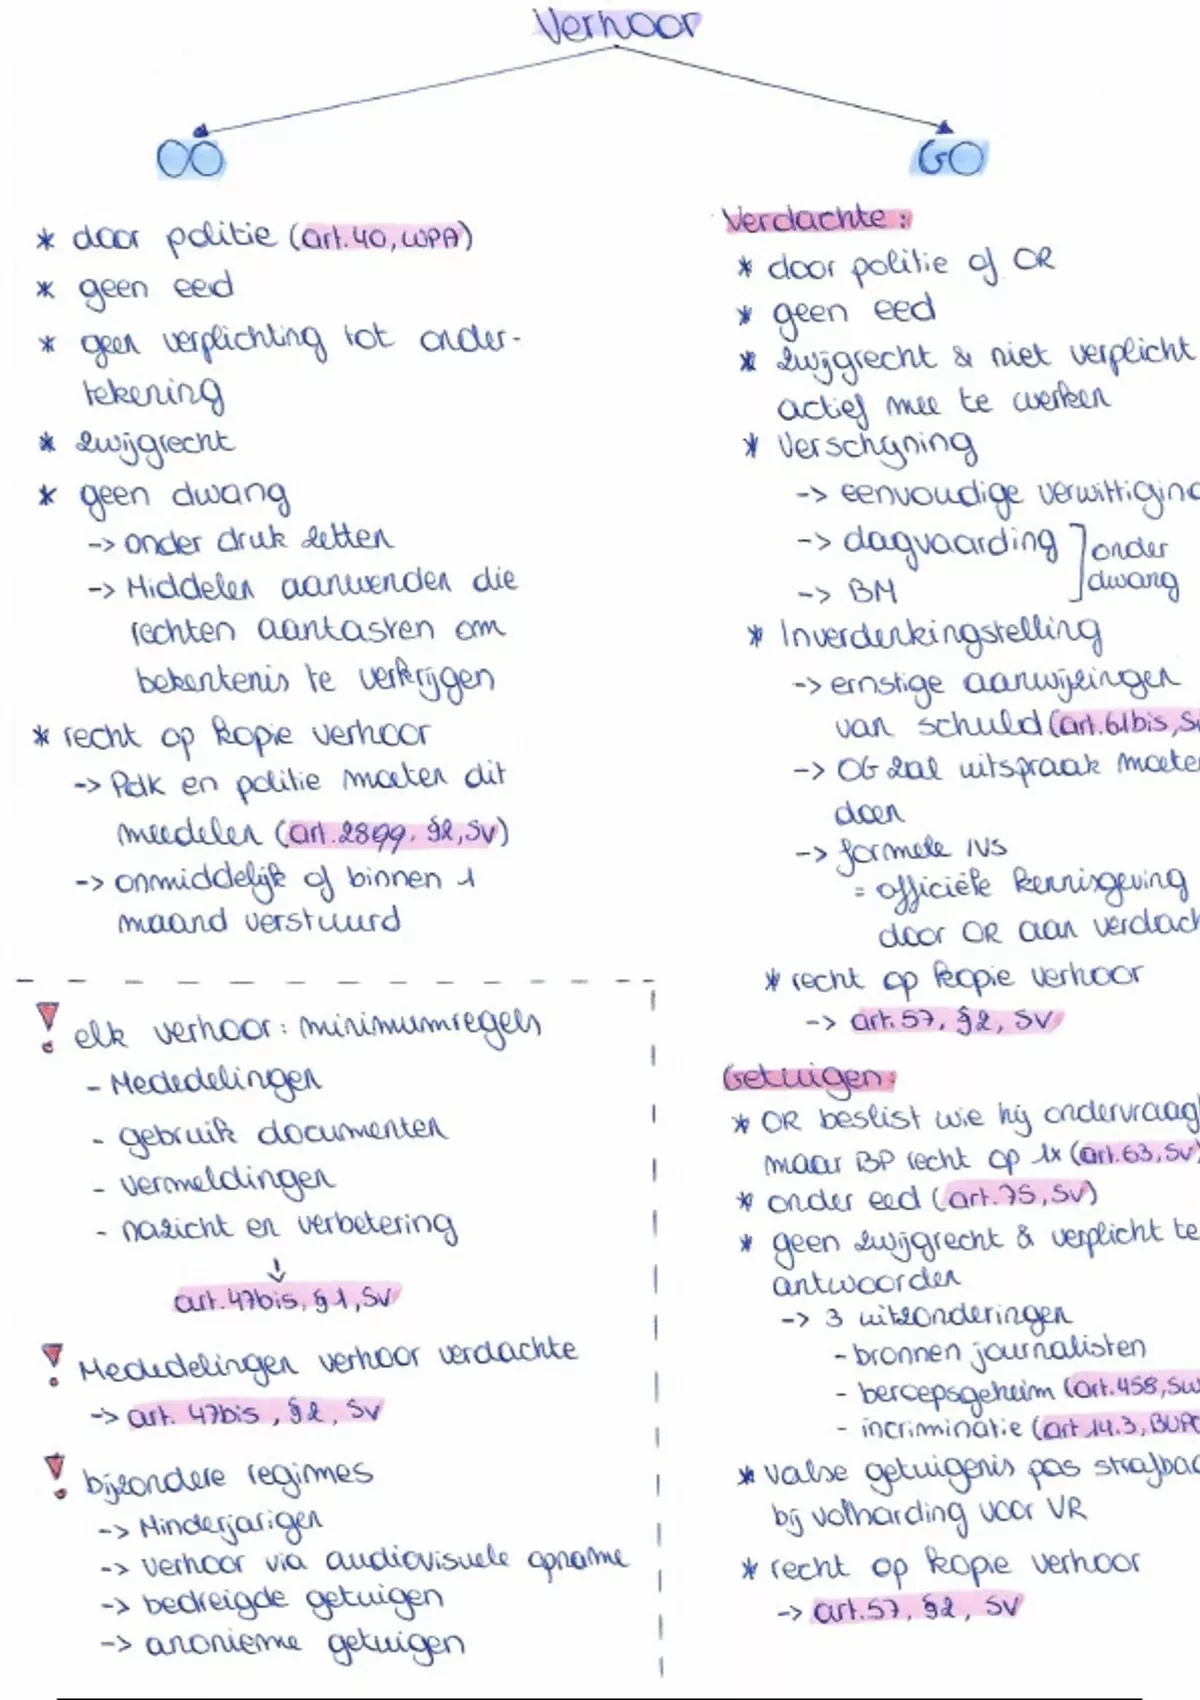 Verhoor
OO
* door politie (art. 40, WPA)
* geen eed
* geen verplichting tot onder-
tekening
* zwijgrecht
* geen dwang
-> onder druk zetten
-> Middelen aanwenden die
rechten aantasten om
bekentenis te verkrijgen
* recht op kopie verhoor
-> PdK en politie moeten dit
meedelen (art. 28qq, §2, Sv)
-> onmiddelijk of binnen 1
maand verstuurd
! elk verhoor: minimumregels
- Mededelingen
- gebruik documenten
- vermeldingen
- nazicht en verbetering
↓
art. 47bis, §1, Sv
! Mededelingen verhoor verdachte
-> art. 47bis, §2, Sv
! bijzondere regimes
-> Minderjarigen
-> verhoor via audiovisuele opname
-> bedreigde getuigen
-> anonieme getuigen
GO
Verdachte:
* door politie of OR
* geen eed
* zwijgrecht & niet verplicht
actief mee te werken
* Verschijning
-> eenvoudige verwittiging
-> dagvaarding ] onder
-> BM dwang
* Inverdenkingstelling
-> ernstige aanwijzingen
van schuld (art. 61bis, S
-> OG zal uitspraak moete
doen
-> formele IVS
= officiële kennisgeving
door OR aan verdach
* recht op kopie verhoor
-> art. 57, §2, SV
Getuigen:
* OR beslist wie hij ondervraag
maar BP recht op 1x (art. 63, Sv)
* onder eed (art. 75, Sv)
* geen zwijgrecht & verplicht te
antwoorden
-> 3 uitzonderingen
- bronnen journalisten
- beroepsgeheim (art. 458, Sw
- incriminatie (art 14.3, BUPO
* valse getuigenis pas strafbaa
bij volharding voor VR
* recht op kopie verhoor
-> art. 57, §2, SV